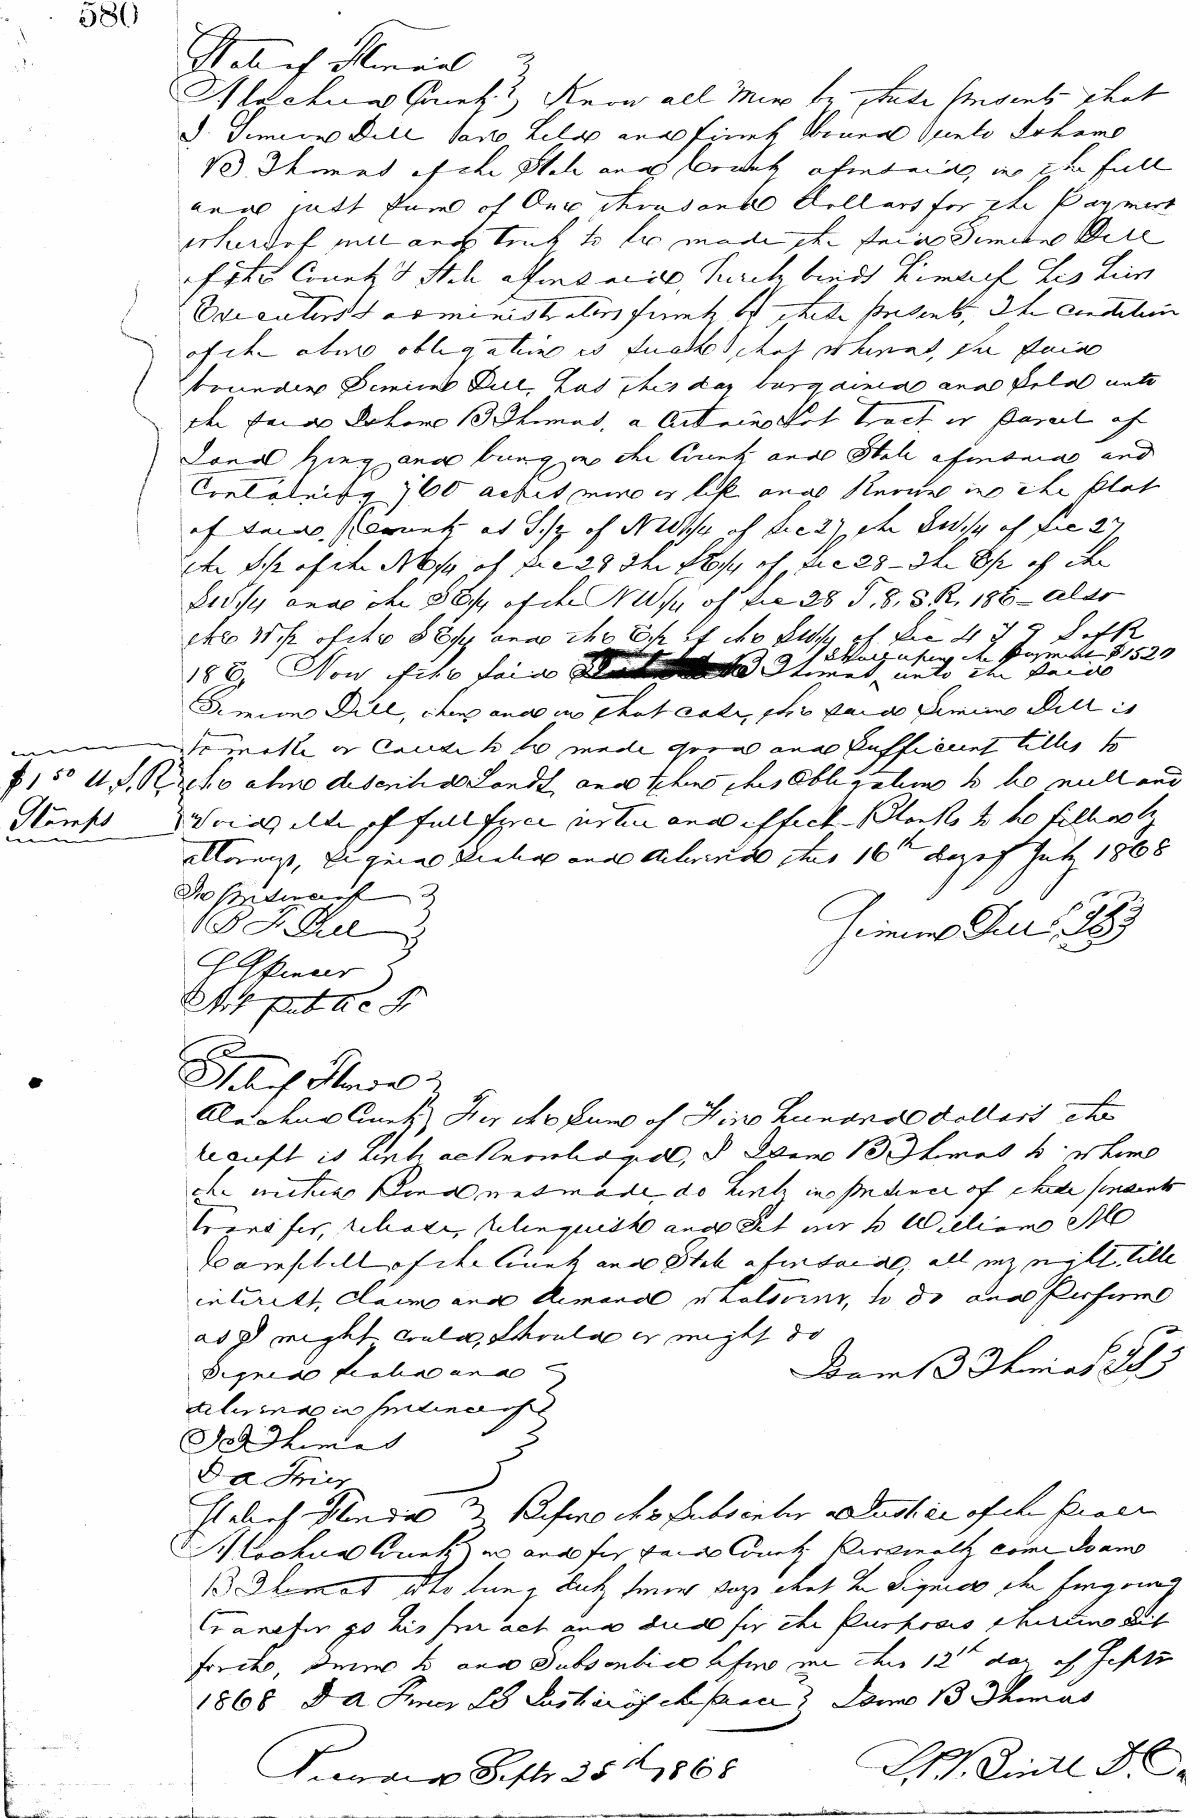 580
State of Florida
Alachua County Know all Men by these presents that
I Simeon Dill am held and firmly bound unto Isham
B. Thomas of the State and County aforesaid, in the full
and just sum of One thousand dollars for the Payment
whereof well and truly to be made the said Simeon Dill
of the County & State aforesaid, hereby binds himself his heirs
Executors & administrators firmly by these presents, The condition
of the above obligation is such, that whereas, the said
bounden Simeon Dill, has this day bargained and Sold unto
the said Isham B Thomas, a certain Lot Tract or parcel of
Land lying and being in the County and State aforesaid and
Containing 760 acres more or less and Known in the plat
of said County as S.1/2 of NW1/4 of Sec 27, the SW1/4 of Sec 27
the S1/2 of the NE1/4 of Sec 28 The SE1/4 of Sec 28 - The E1/2 of the
SW1/4 and the SE1/4 of the NW1/4 of Sec 28 T. 8. S. R. 18E - also
the W1/2 of the SE1/4 and the E1/2 of the SW1/4 of Sec 4 T 9 S of R
Shall upon the payment $1520
18 E, Now if the said B Thomas, unto the said
Simeon Dill, then and in that case, the said Simeon Dill is
to make or cause to be made good and Sufficient titles to
$1 50 U.S.R. the above described Lands, and then this Obligation to be null and
Stamps Void, else of full force virtue and effect - Blanks to be filled by
attorneys, Signed Sealed and delivered this 16th day of July 1868
In presence of
B F. Dill Simeon Dill {LS}
Spencer
Not public Fr
State of Florida
Alachua County For the Sum of Five hundred dollars the
receipt is hereby acknowledged, I Isam B Thomas to whom
the within Bond was made do hereby in presence of these presents
transfer, release, relinquish and Set over to William M
Campbell of the County and State aforesaid, all my right, title
interest, claim and demand whatsoever, to do and Perform
as I might could, should or might do
Signed sealed and Isam B Thomas {LS}
delivered in presence of
J D Thomas
D A Frier
State of Florida Before the Subscriber a Justice of the Peace
Alachua County in and for said County Personally come Isam
B Thomas who being duly sworn says that he Signed the foregoing
transfer as his free act and deed for the Purposes therein Set
forth, Sworn to and Subscribed before me this 12th day of Septr
1868 D A Frier LS Justice of the peace Isam B Thomas
Recorded Septr 25th 1868 D.C.